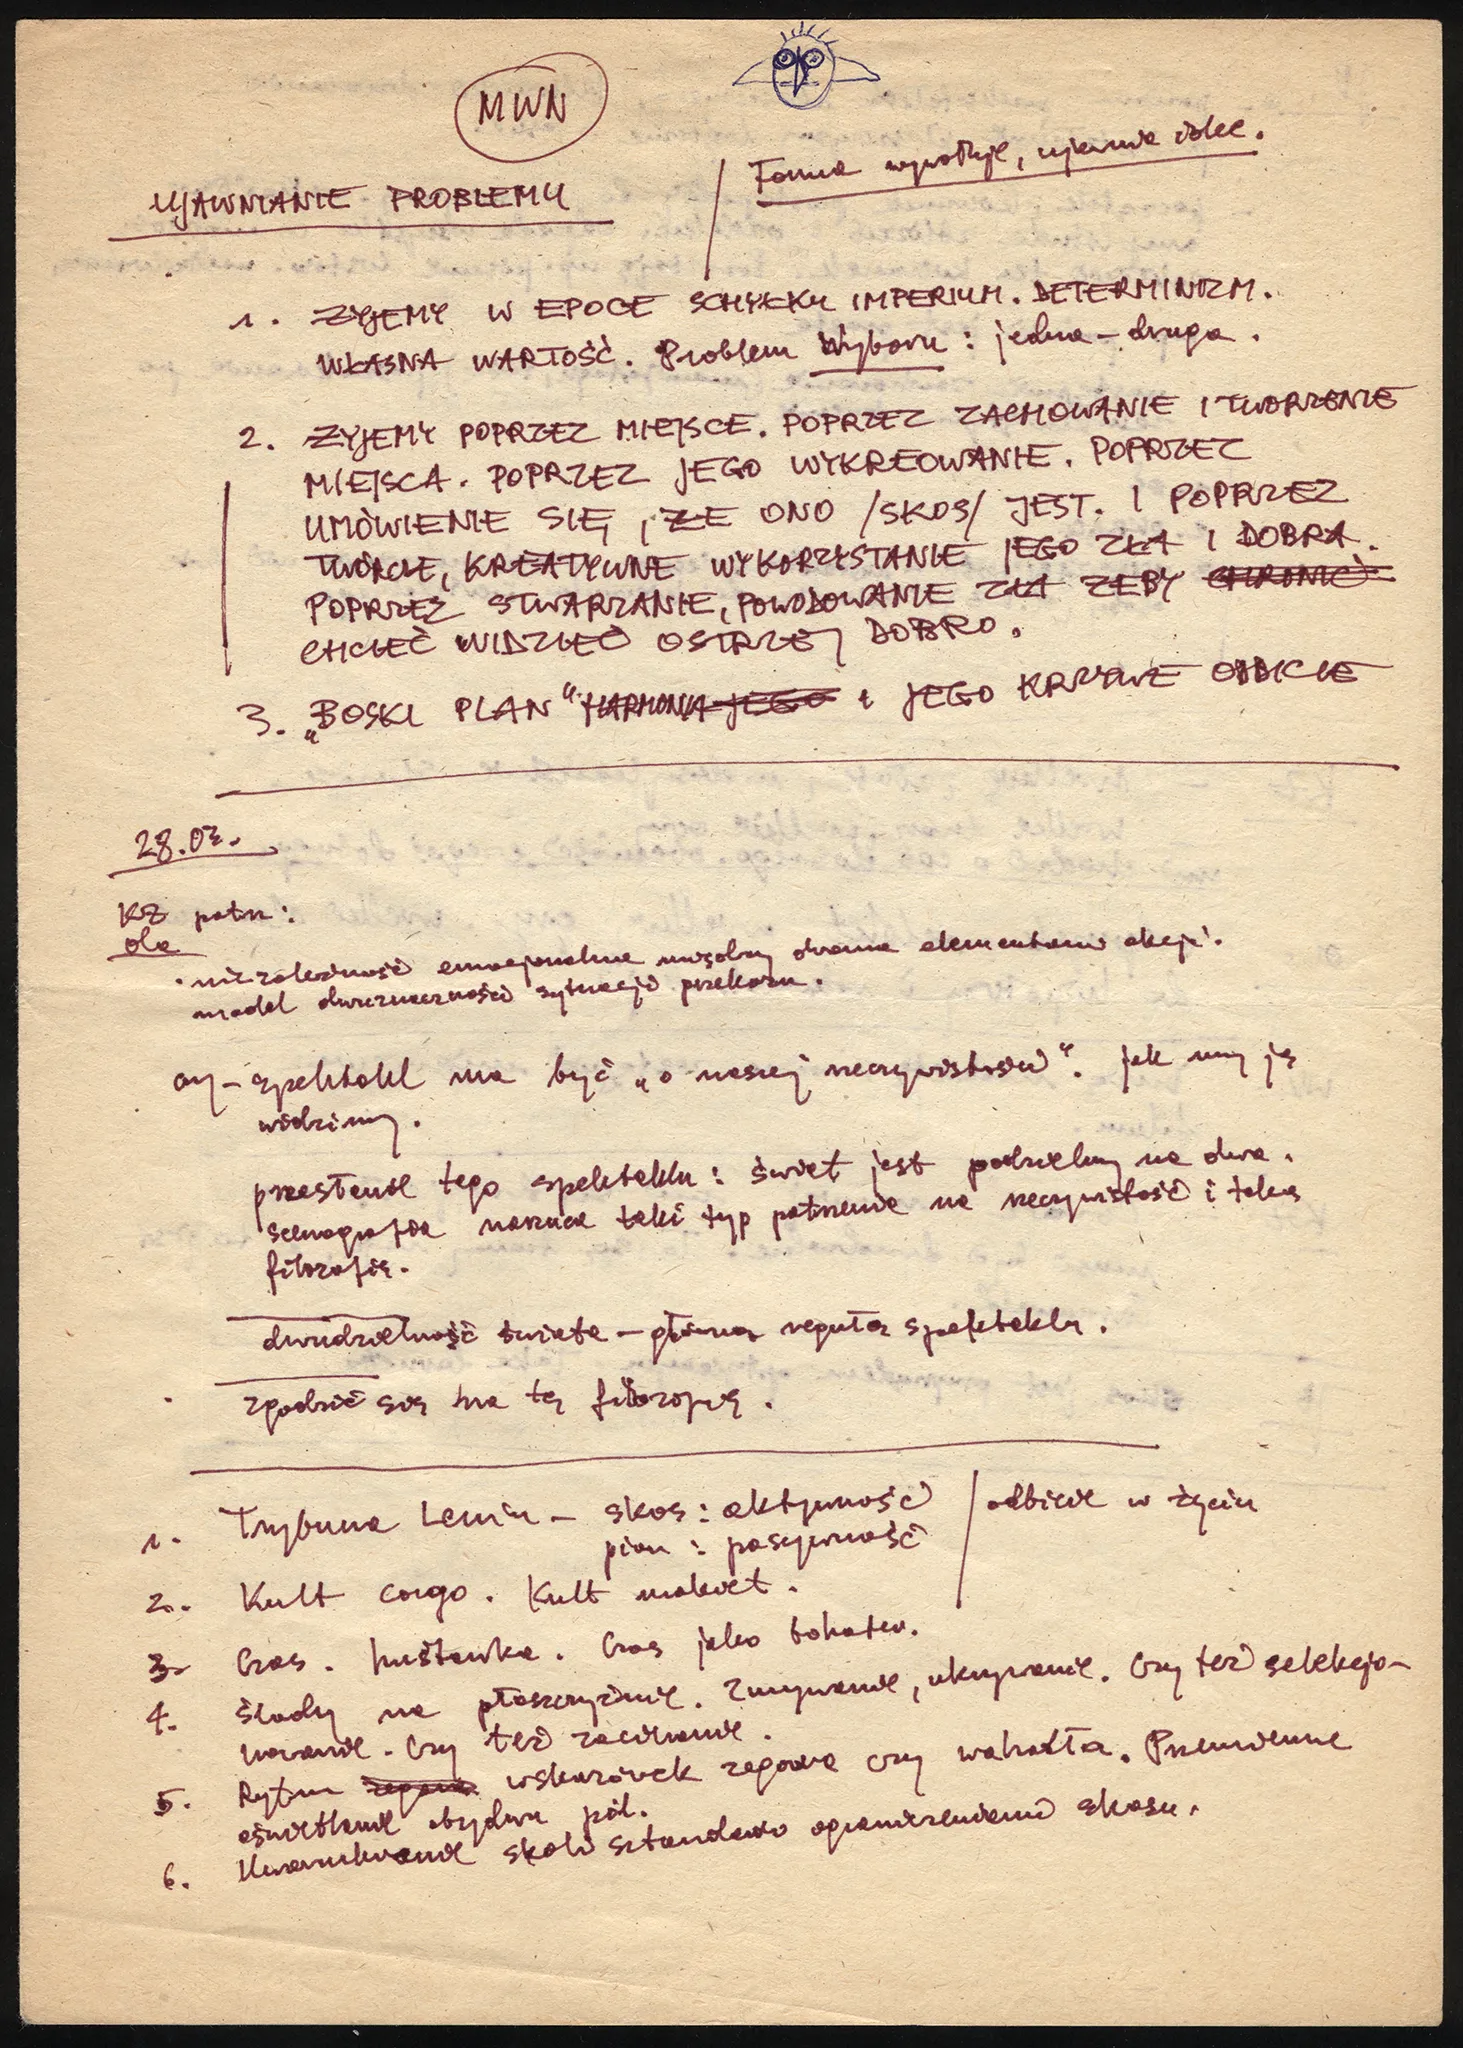 MWN
UJAWNIANIE PROBLEMU
Forma wywołuje, ujawnia ideę.
1. ŻYJEMY W EPOCE SCHYŁKU IMPERIUM. DETERMINIZM.
WŁASNA WARTOŚĆ. Problem Wyboru : jedna – druga.
2. ŻYJEMY POPRZEZ MIEJSCE. POPRZEZ ZACHOWANIE I TWORZENIE
MIEJSCA. POPRZEZ JEGO WYKREOWANIE. POPRZEZ
UMÓWIENIE SIĘ, ŻE ONO /SKOS/ JEST. I POPRZEZ
TWÓRCZE, KREATYWNE WYKORZYSTANIE JEGO ZŁA I DOBRA.
POPRZEZ STWARZANIE, POWODOWANIE ZŁA ŻEBY CHRONIĆ
CHCIEĆ WIDZIEĆ OSTRZEJ DOBRO.
3. „BOSKI PLAN“ HARMONIA JEGO i JEGO KRZYWE ODBICIE
28.03.
KZ
ola
· niezależność emocjonalna między dwoma elementami akcji.
model dwuznaczności sytuacji przekazu.
– spektakl ma być „o naszej rzeczywistości“. Jak my ją
widzimy.
przesłanie tego spektaklu : świat jest podzielony na dwa.
scenografia narzuca taki typ patrzenia na rzeczywistość i taką
filozofię.
dwudzielność świata – główną regułą spektaklu.
zgodzić się na tę filozofię.
1. Trybuna Lenin – skos : aktywność
pion : pasywność
odbicie w życiu
2. Kult cargo. Kult makiet.
3. Czas. huśtawka. Czas jako bohater.
4. ślady na płaszczyźnie. Zmywanie, ukrywanie. Czy też selekcjo-
nowanie. Czy też zacieranie.
5. Rytm zegara wskazówek zegara czy wahadła. Przemienne
oświetlenie obydwu pól.
6. Uwarunkowanie skali sztandaru ograniczeniami skosu.